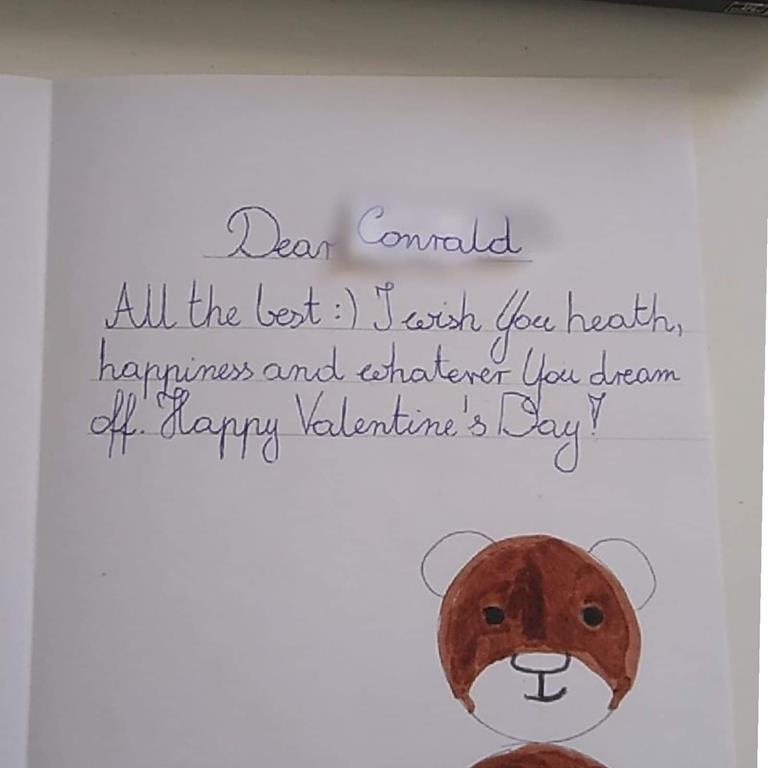 Dear Conrald
All the best :) I wish You heath,
happiness and whatever You dream
off. Happy Valentine's Day!